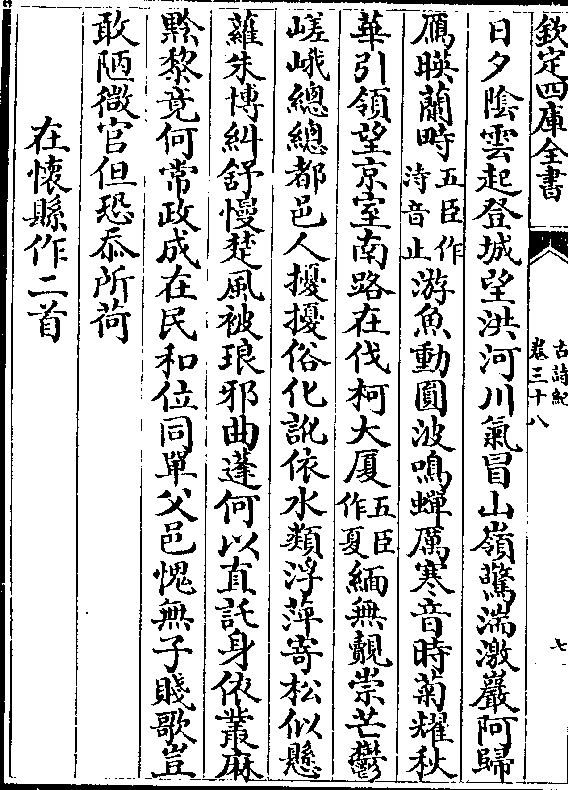 欽定四庫全書
古詩紀
卷三十八
七
日夕陰雲起登城望洪河川氣冒山嶺驚湍激巖阿歸
鴈暎蘭畤五臣作洔音止游魚動圓波鳴蟬厲寒音時菊耀秋
華引領望京室南路在伐柯大厦五臣作夏緬無覿崇芒鬱
嵯峨總總都邑人擾擾俗化訛依水類浮萍寄松似懸
蘿朱博糾舒慢楚風被琅邪曲蓬何以直託身依叢麻
黔黎竟何常政成在民和位同單父邑愧無子賤歌豈
敢陋微官但恐忝所荷
在懷縣作二首